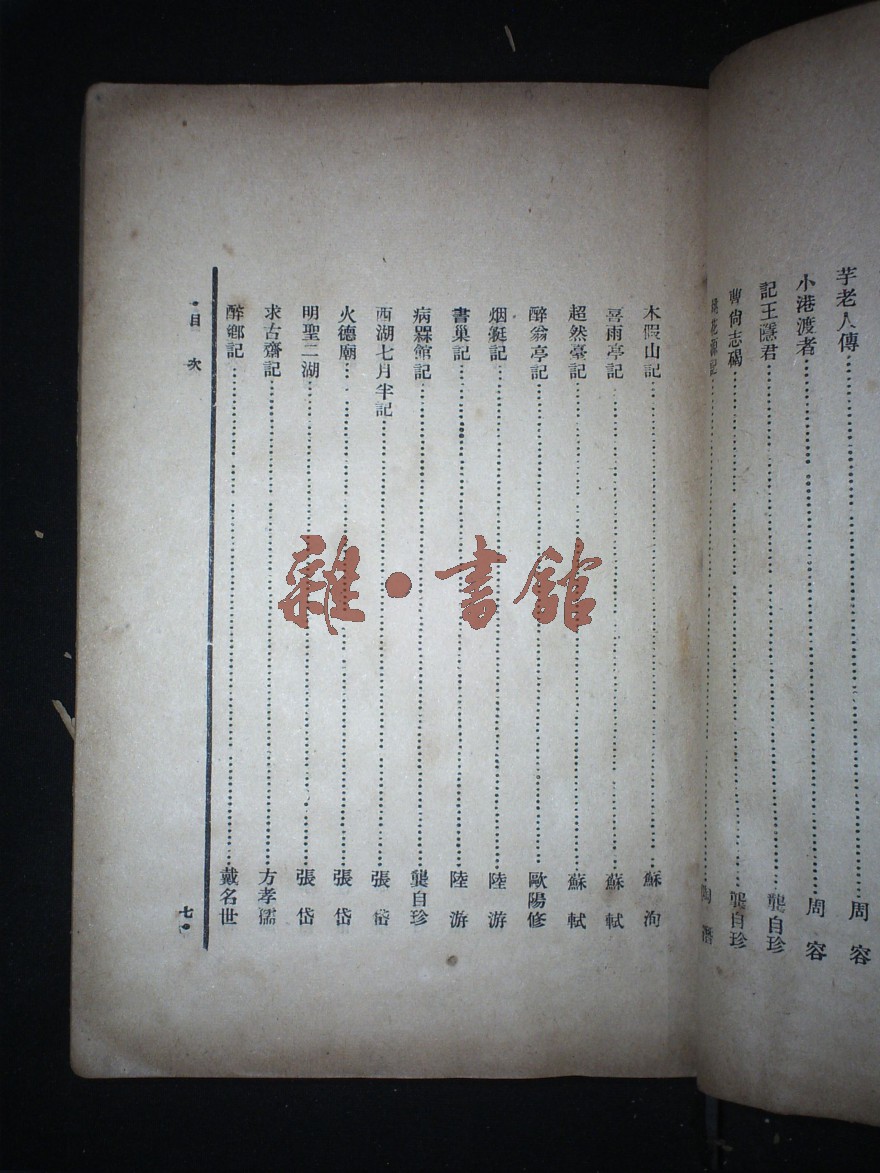 芋老人傳……周容
小港渡者……周容
記王隱君……龔自珍
曹尙志碣……龔自珍
桃花源記……陶潛
木假山記……蘇洵
喜雨亭記……蘇軾
超然臺記……蘇軾
醉翁亭記……歐陽修
烟艇記……陸游
書巢記……陸游
病槑館記……龔自珍
西湖七月半記……張岱
火德廟……張岱
明聖二湖……張岱
求古齋記……方孝孺
醉鄉記……戴名世
·目次
七·
雜·書館